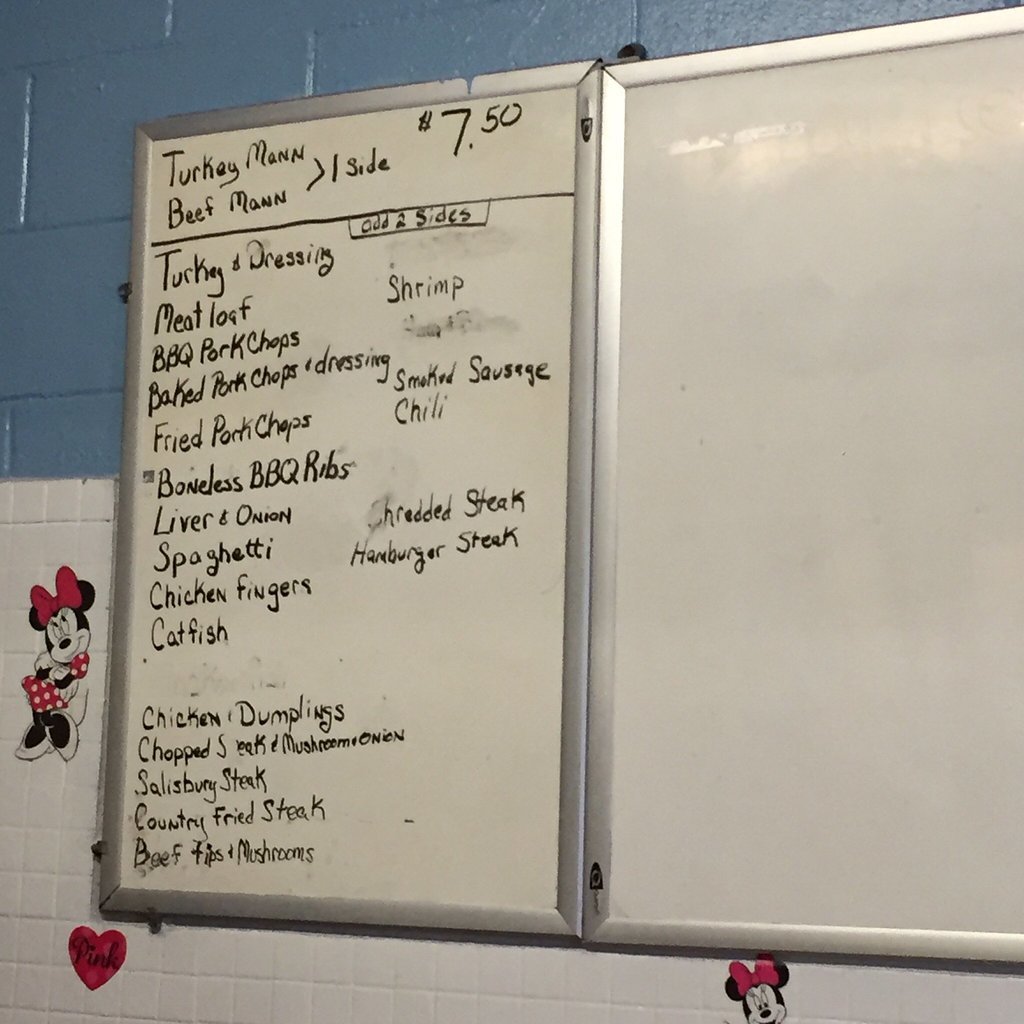 Turkey Mann
Beef Mann
> 1 Side
$7.50
add 2 Sides
Turkey & Dressing
Meat loaf
BBQ Pork Chops
Baked Pork Chops & dressing
Fried Pork Chops
Boneless BBQ Ribs
Liver & Onion
Spaghetti
Chicken fingers
Catfish
Chicken & Dumplings
Chopped S eak & Mushroom & Onion
Salisbury Steak
Country Fried Steak
Beef Tips & Mushrooms
Shrimp
Smoked Sausage
Chili
Shredded Steak
Hamburger Steak
Pink